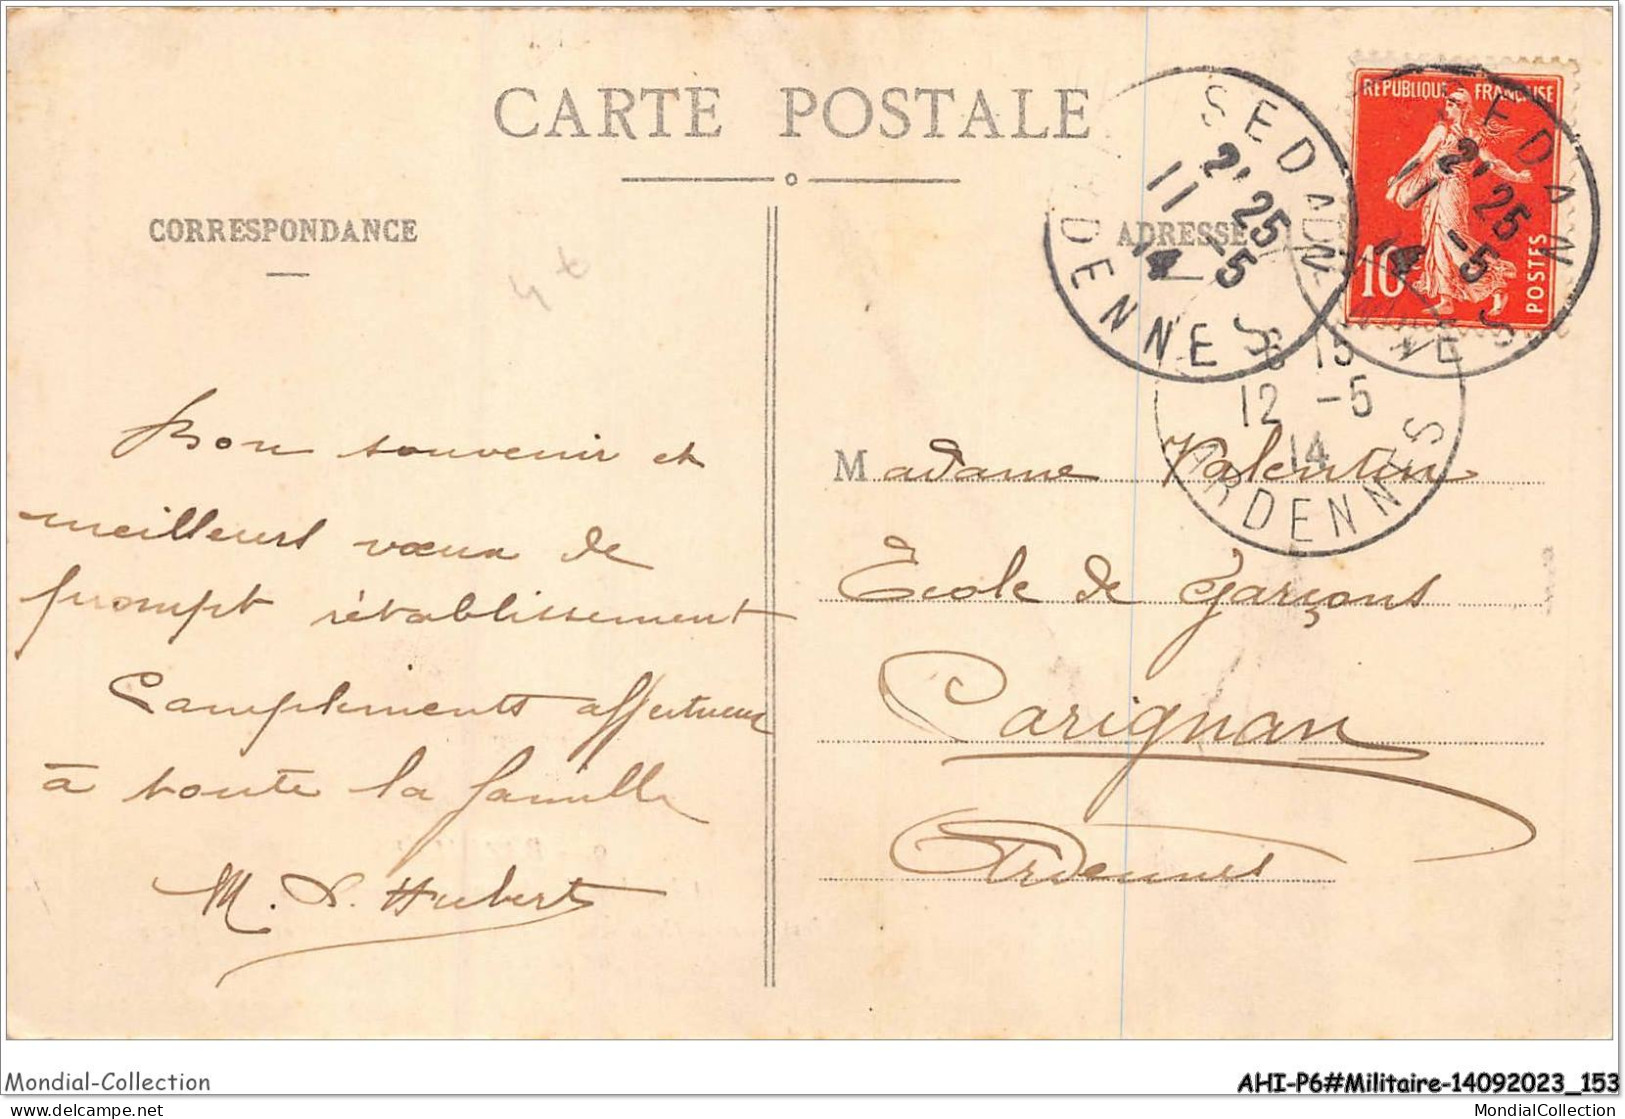 CARTE POSTALE
CORRESPONDANCE
ADRESSE
SEDAN
2' 25
11 -5
14
ARDENNES
REPUBLIQUE FRANÇAISE
10
POSTES
SEDAN
2' 25
11 -5
14
NES
15
12 -5
14
ARDENNES
Bon souvenir et
meilleurs vœux de
prompt rétablissement
Compliments affectueux
à toute la famille
M. Hubert
Madame Valentin
Ecole de Garçons
Carignan
Ardennes
Mondial-Collection
AHI-P6#Militaire-14092023_153
delcampe.net
MondialCollection